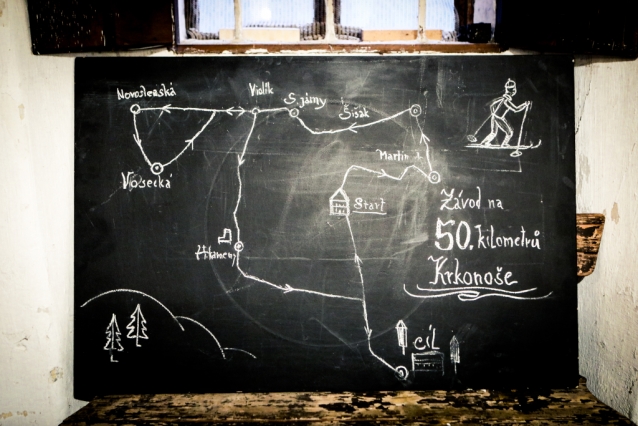 Novoslezská
Violík
S. jámy
Šišák
Martin. b.
Vosecká
Start
H. kameny
Závod na
50. kilometrů
Krkonoše
cíl